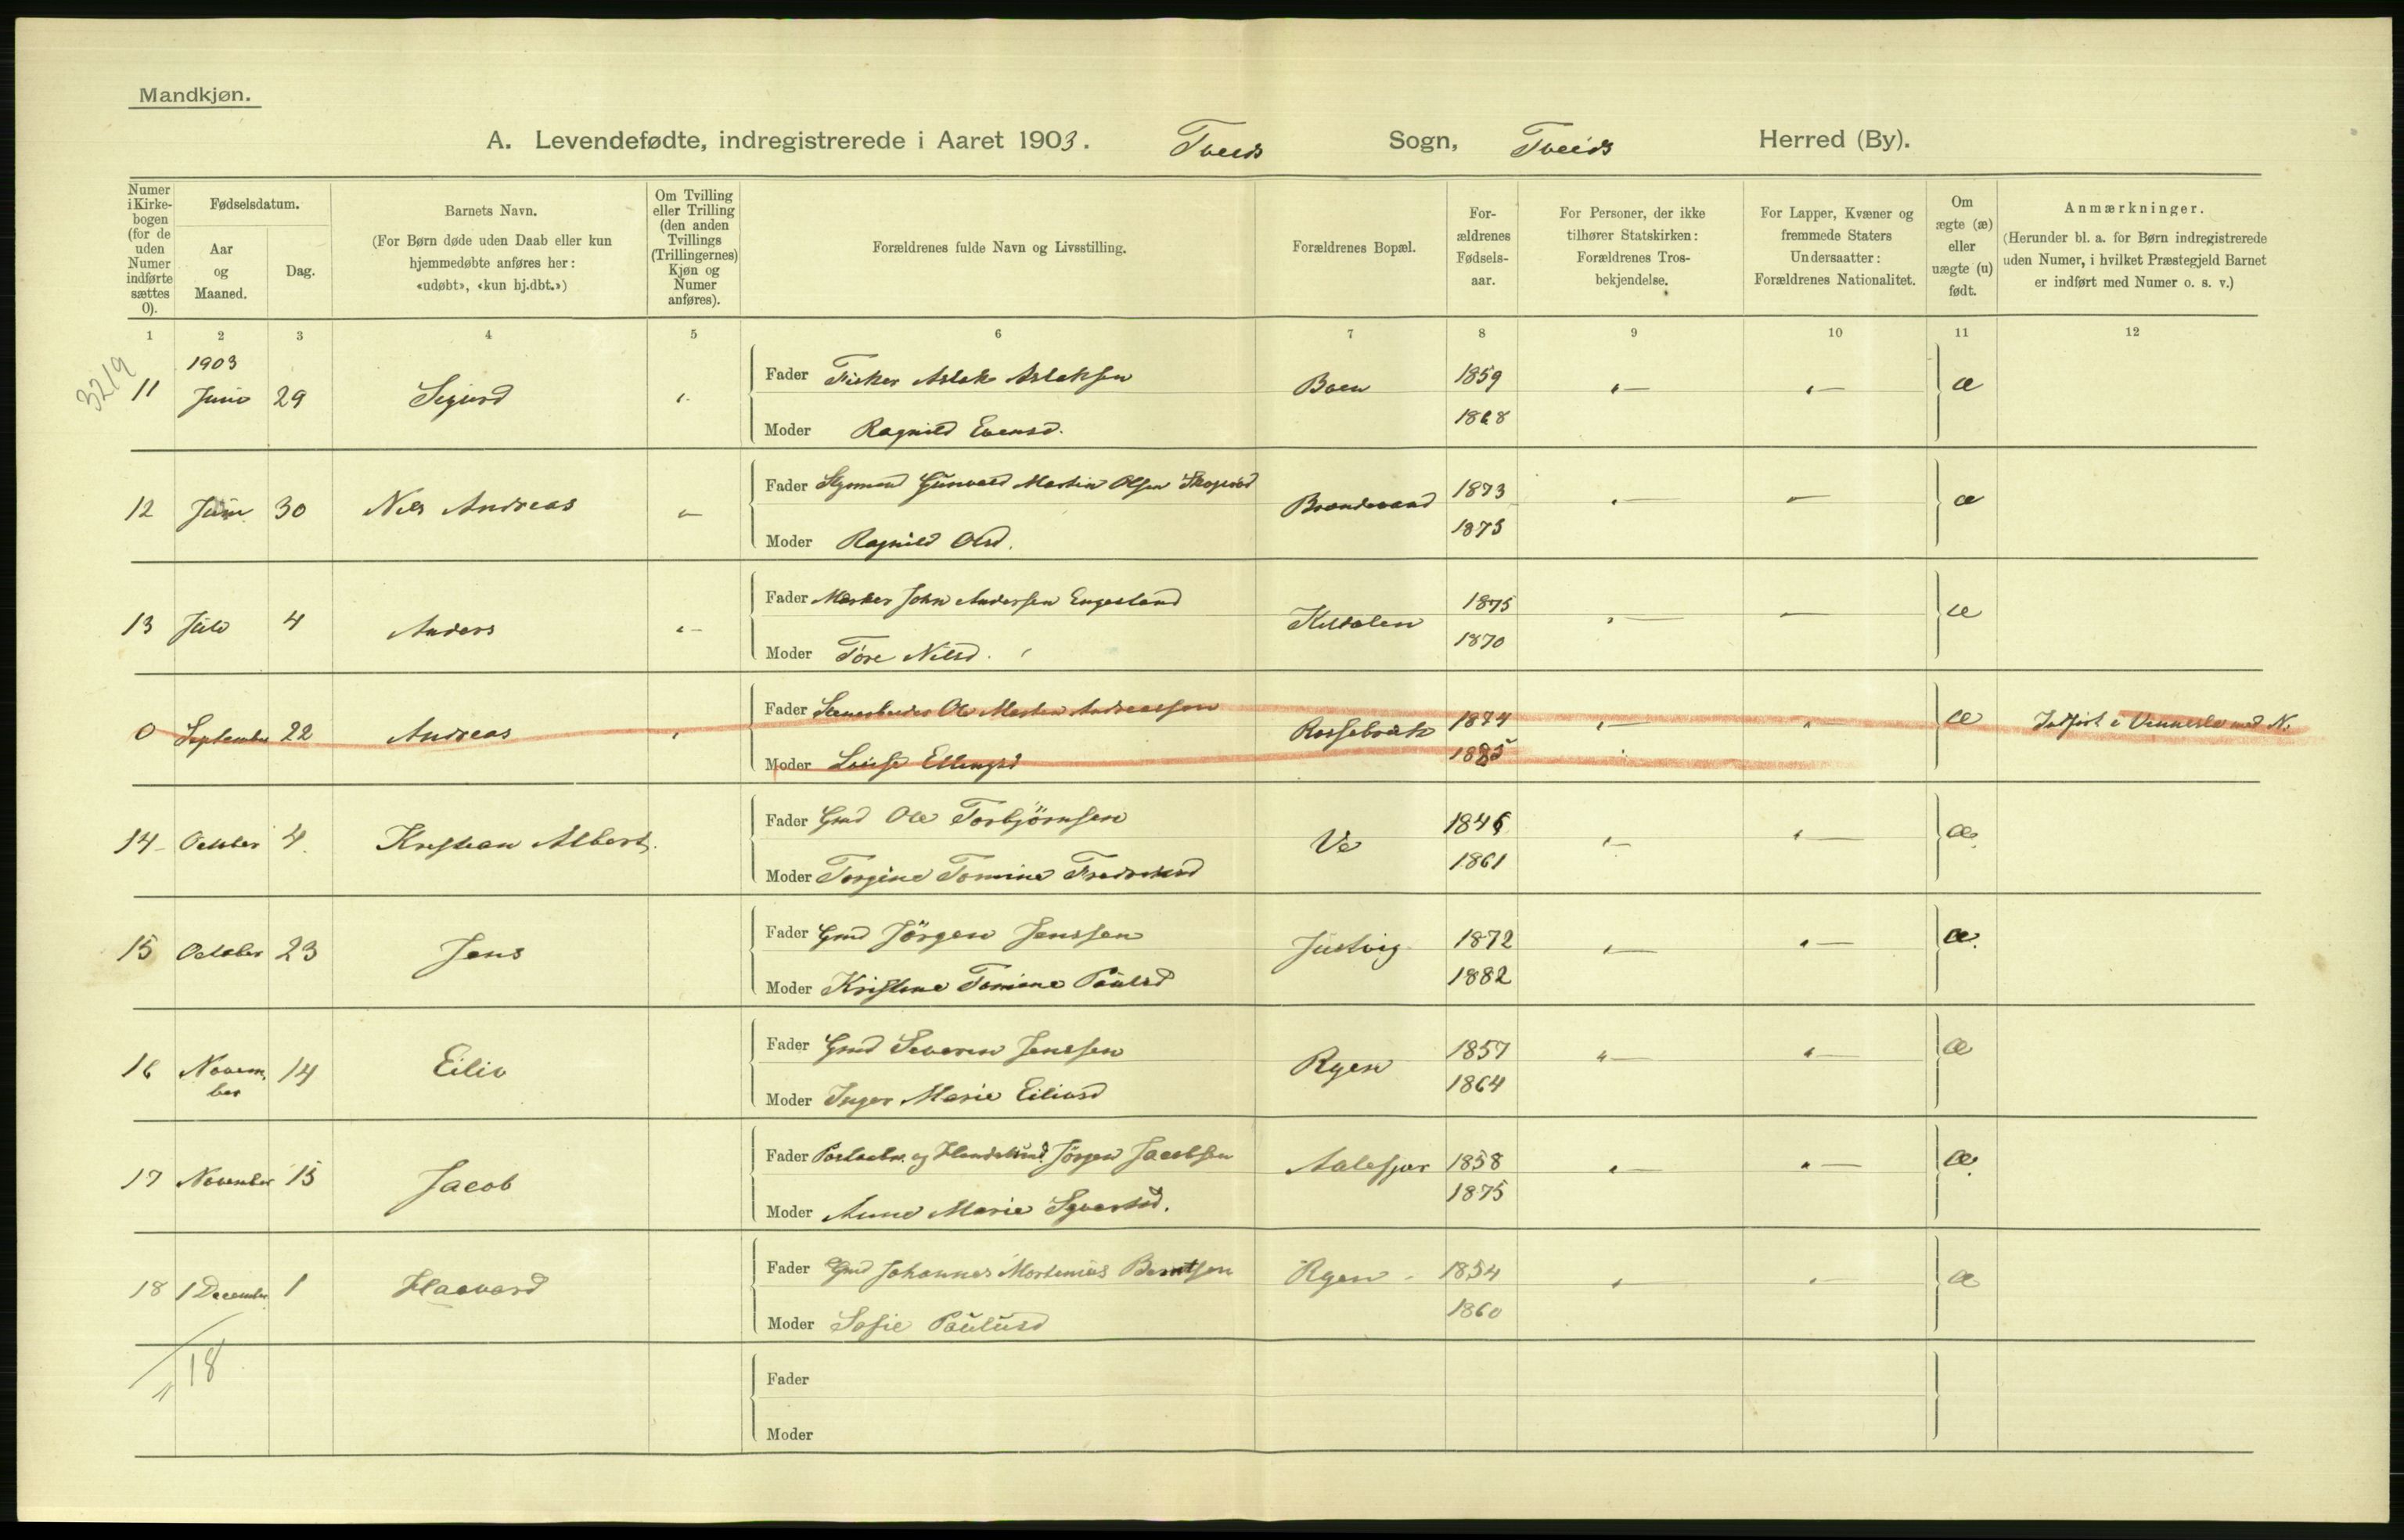 Mandkjøn.
A. Levendefødte, indregistrerede i Aaret 1903. Tveids Sogn, Tveids Herred (By).
Numer i Kirke-bogen (for de uden Numer indførte sættes 0).
Fødselsdatum.
Aar og Maaned.
Dag.
Barnets Navn.
(For Børn døde uden Daab eller kun hjemmedøbte anføres her: «udøbt», «kun hj.dbt.»)
Om Tvilling eller Trilling (den anden Tvillings (Trillingernes) Kjøn og Numer anføres).
Forældrenes fulde Navn og Livsstilling.
Forældrenes Bopæl.
For-ældrenes Fødsels-aar.
For Personer, der ikke tilhører Statskirken: Forældrenes Tros-bekjendelse.
For Lapper, Kvæner og fremmede Staters Undersaatter: Forældrenes Nationalitet.
Om ægte (æ) eller uægte (u) født.
Anmærkninger.
(Herunder bl. a. for Børn indregistrerede uden Numer, i hvilket Præstegjeld Barnet er indført med Numer o. s. v.)
1 2 3 4 5 6 7 8 9 10 11 12
3219
1903
11 Juni 29 Sigurd Fader Fisker Aslak Aslaksen Boen 1859 æ
Moder Ragnild Evensd. 1868
12 Juni 30 Nils Andreas Fader Gunvald Martin Olsen 1873 æ
Moder Ragnild Olsd. 1875
13 Juli 4 Anders Fader John Andersen Engesland 1875 æ
Moder Tore Nilsd. 1870
0 September 22 Andreas Fader Ole Martin Andreassen 1874 æ Indført i Vennesla med N.
Moder Louise Ellingsd 1885
14 October 4. Kristian Albert. Fader Gmd Ole Torbjörnsen Ve 1846 æ.
Moder Torgine Tomine 1861
15 October 23 Jens Fader Gmd Jörgen Jenssen Justvig 1872 æ.
Moder Kristine Tomine Paulsd 1882
16 November 14 Eiliv Fader Gmd Severin Jenssen Ryen 1857 æ
Moder Inger Marie Eilivsd 1864
17 November 15 Jacob Fader og Jörgen Jacobsen Aalefjær 1858 æ.
Moder Anne Marie Syvertsd. 1875
18 1 December 1 Haavard Fader Gmd Johannes Mortinius Berntsen Ryen 1854 æ
Moder Sofie Paulusd 1860
18
Fader
Moder